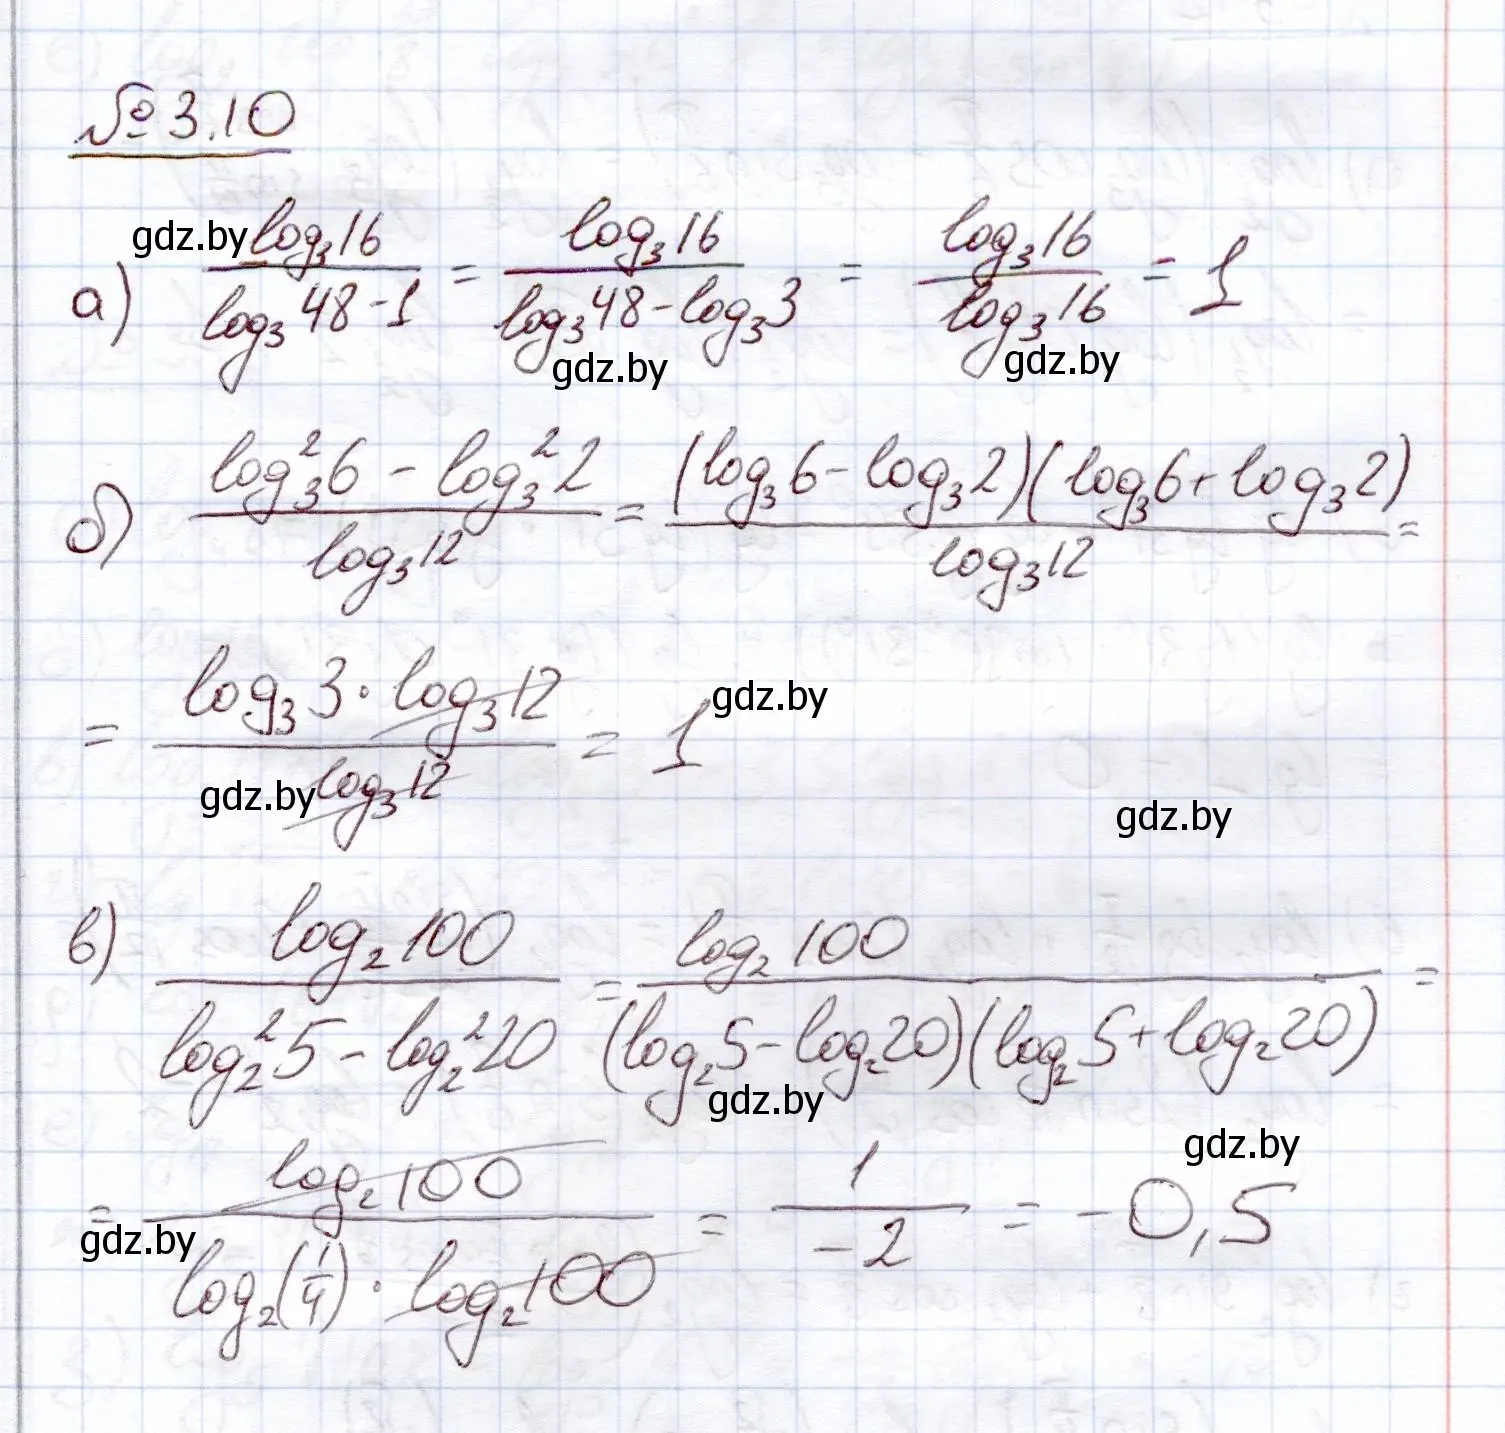 № 3.10
gdz.by
а) log₃16 / (log₃48 - 1) = log₃16 / (log₃48 - log₃3) = log₃16 / log₃16 = 1
gdz.by gdz.by
б) (log₃²6 - log₃²2) / log₃12 = (log₃6 - log₃2)(log₃6 + log₃2) / log₃12 =
= log₃3 · log₃12 / log₃12 = 1
gdz.by
gdz.by
gdz.by
в) log₂100 / (log₂²5 - log₂²20) = log₂100 / ((log₂5 - log₂20)(log₂5 + log₂20)) =
gdz.by
gdz.by
= log₂100 / (log₂(1/4) · log₂100) = 1 / -2 = -0,5
gdz.by